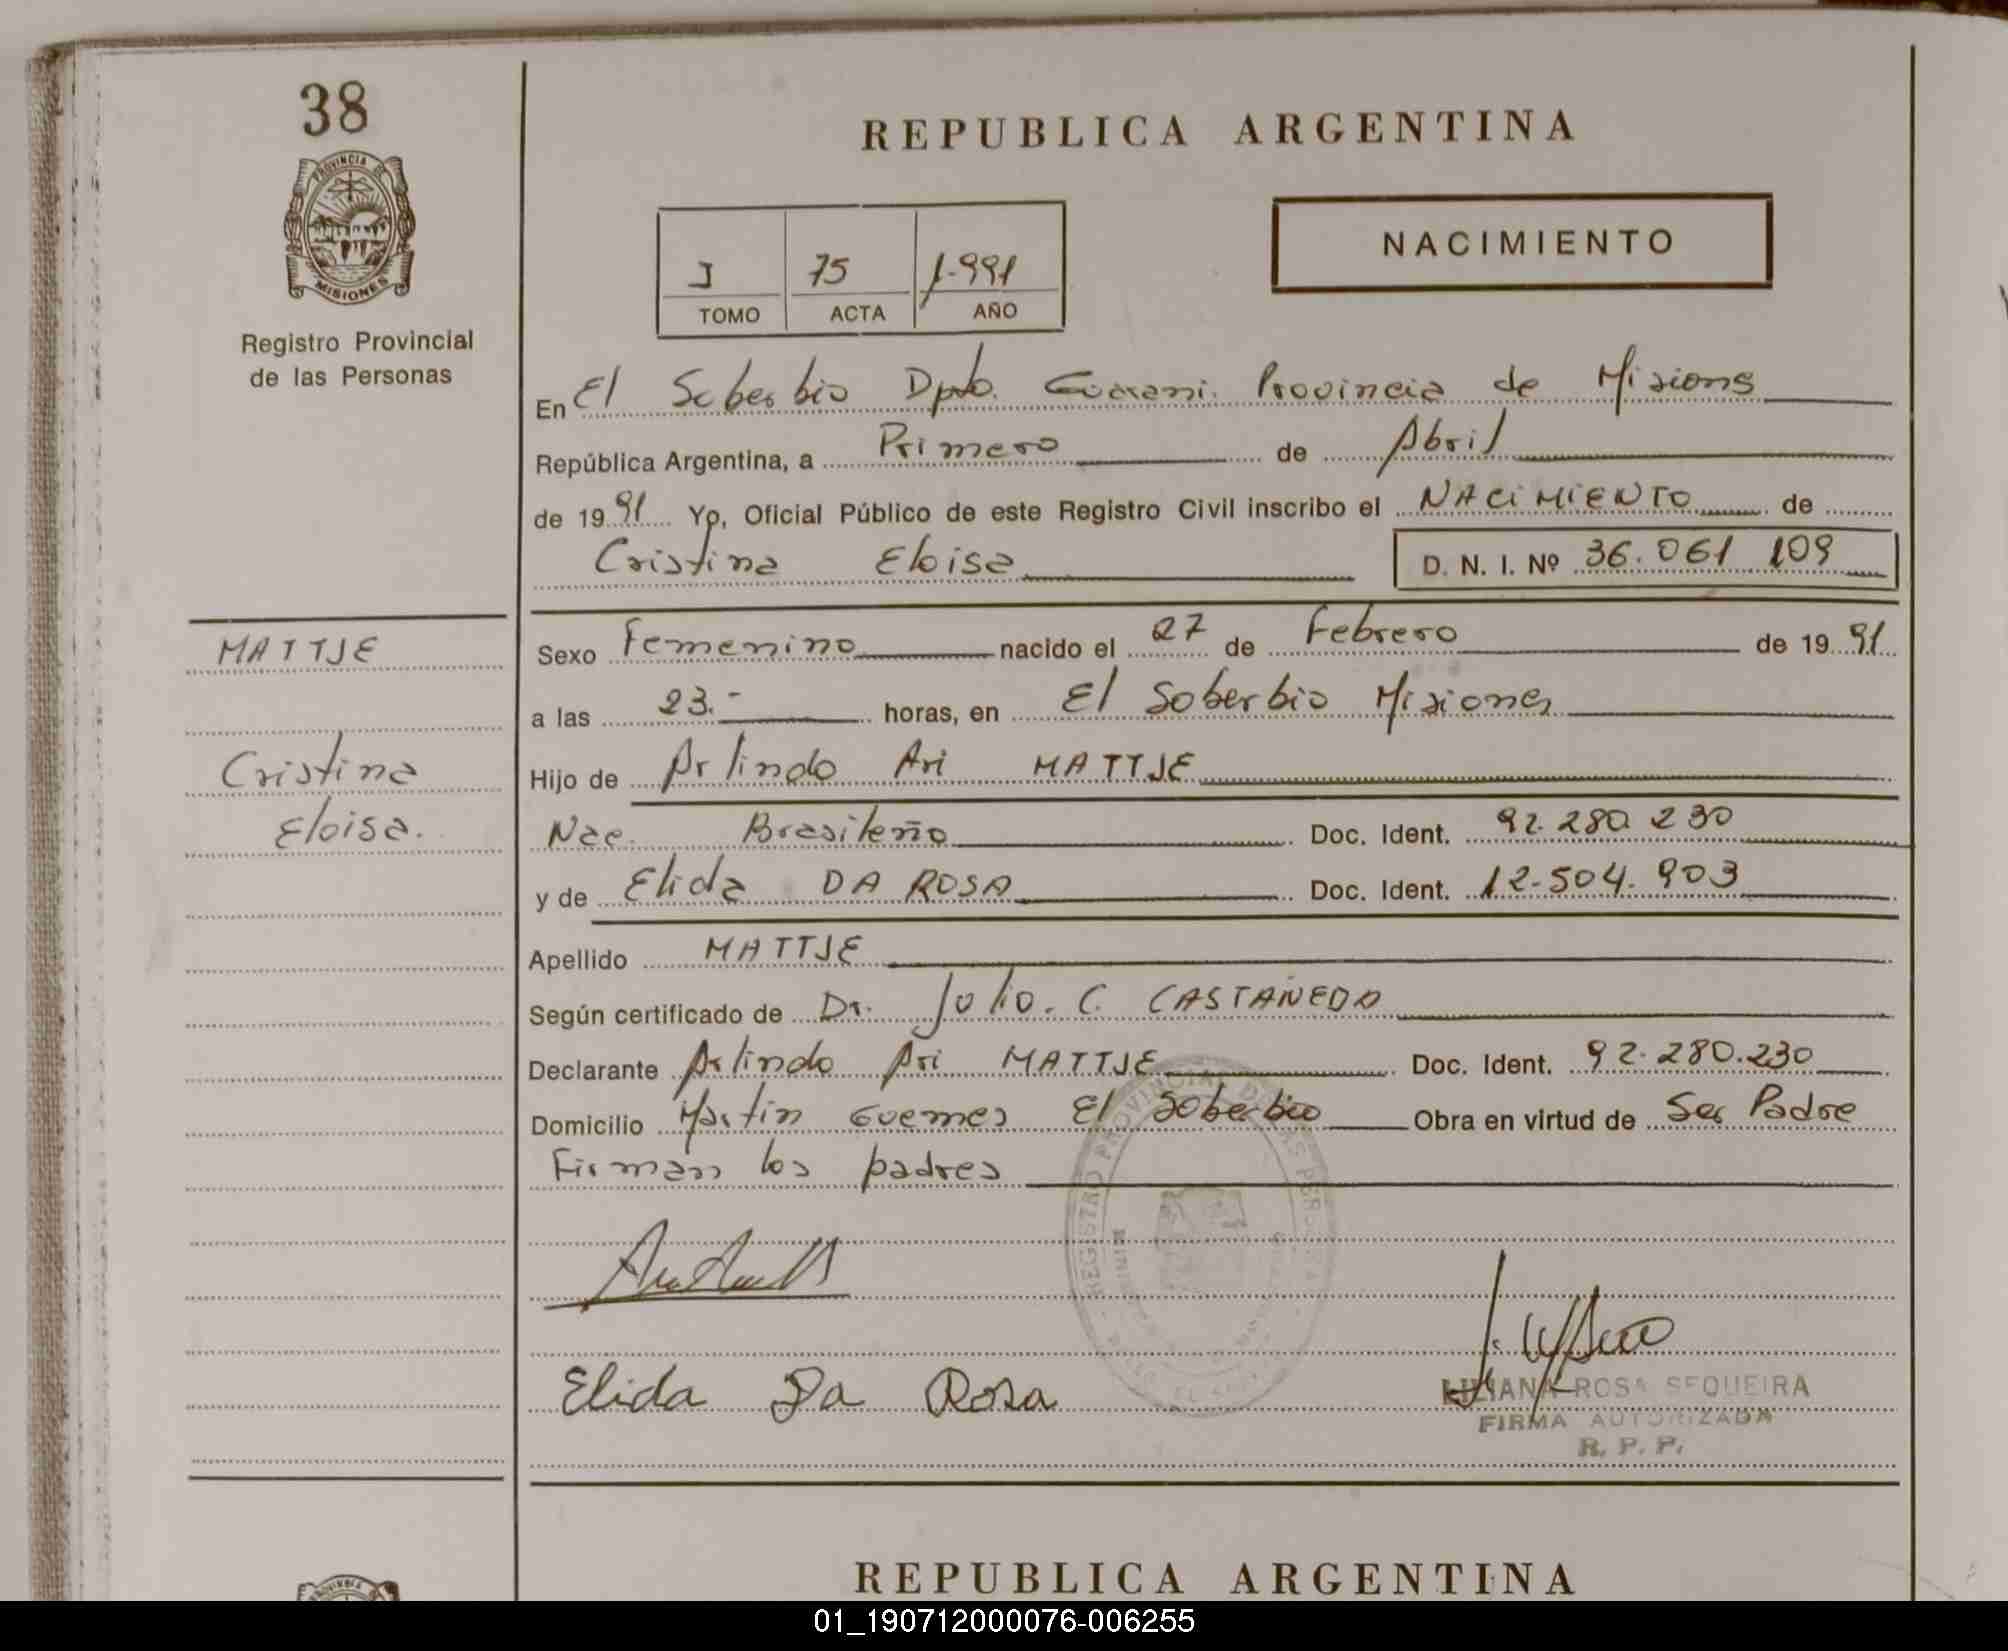 38
PROVINCIA DE
MISIONES
Registro Provincial
de las Personas
REPUBLICA ARGENTINA
I 75 1.991
TOMO ACTA AÑO
NACIMIENTO
En El Soberbio Dpto. Guarani. Provincia de Misiones
República Argentina, a Primero de Abril
de 1991 Yo, Oficial Público de este Registro Civil inscribo el NACIMIENTO de
Cristina Eloisa D. N. I. Nº 36.061.109
MATTJE
Cristina
Eloisa.
Sexo Femenino nacido el 27 de Febrero de 1991
a las 23.- horas, en El Soberbio Misiones
Hijo de Arlindo Ari MATTJE
Nac. Brasileño Doc. Ident. 92.280.230
y de Elida DA ROSA Doc. Ident. 12.504.903
Apellido MATTJE
Según certificado de Dr. Julio. C. CASTAÑEDA
Declarante Arlindo Ari MATTJE Doc. Ident. 92.280.230
Domicilio Martin Guemes El Soberbio Obra en virtud de Ser Padre
Firman los padres
REGISTRO PROVINCIAL DE LAS PERSONAS
Elida Da Rosa
LILIANA ROSA SEQUEIRA
FIRMA AUTORIZADA
R. P. P.
REPUBLICA ARGENTINA
01_190712000076-006255